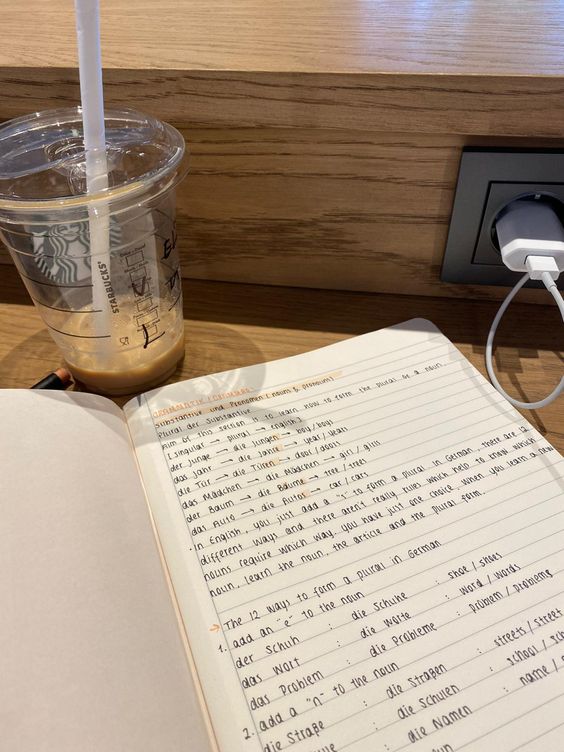 STARBUCKS
GRAMMATIK / GRAMMAR
Substantive und Pronomen (nouns & pronouns)
Plural der Substantive
Aim of this section is to learn how to form the plural of a noun.
[singular → plural → english]
der Junge → die Jungen → boy/boys
das Jahr → die Jahre → year/years
die Tür → die Türen → door/doors
das Mädchen → die Mädchen → girl / girls
der Baum → die Bäume → tree / trees
das Auto → die Autos → car / cars
. In English, you just add a "s" to form a plural. In German, there are 12
different ways and there aren't really rules which help to know which
nouns require which way. You have just one choice. When you learn a new
noun, learn the noun, the article and the plural form.
→ The 12 ways to form a plural in German
1. add an "e" to the noun
der Schuh : die Schuhe : shoe / shoes
das Wort : die Worte : word / words
das Problem : die Probleme : problem / problems
2. add a "n" to the noun
die Straße : die Straßen : streets / street
die Schulen : school /
die Namen : name /